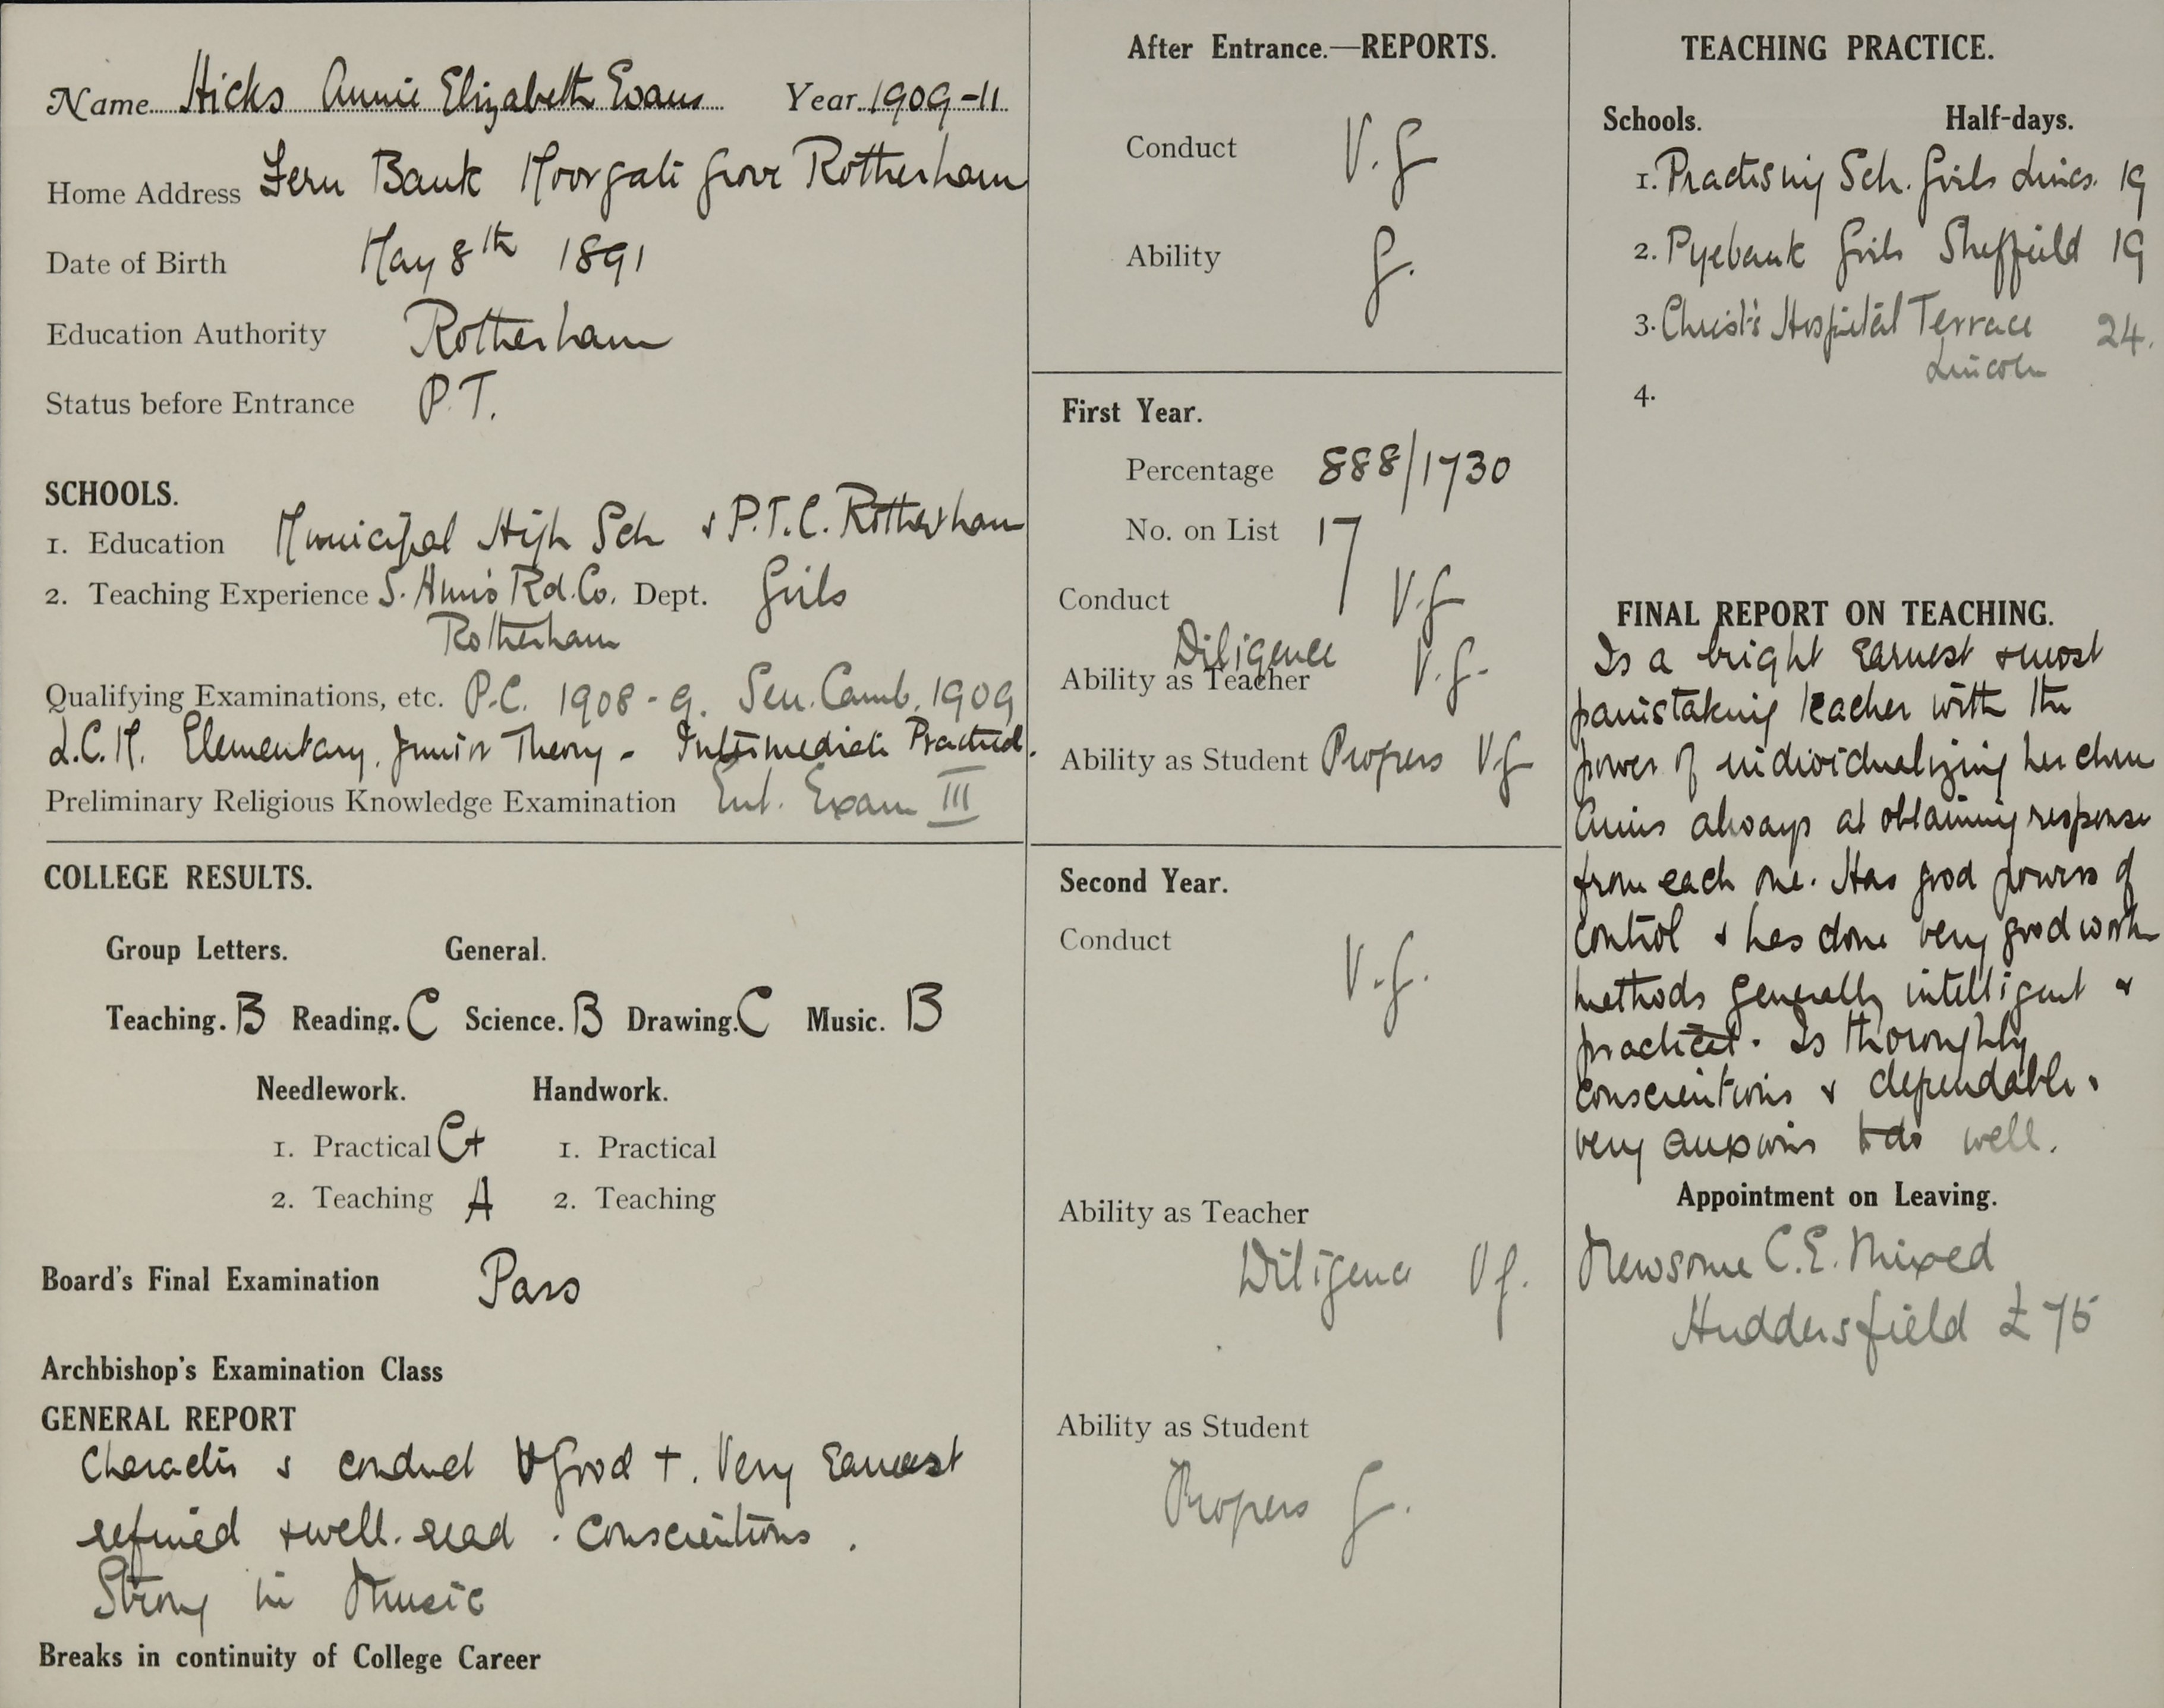 Name Hicks Annie Elizabeth Evans Year 1909-11
Home Address Fern Bank Moorgate Grove Rotherham
Date of Birth May 8th 1891
Education Authority Rotherham
Status before Entrance P.T.
SCHOOLS.
1. Education Municipal High Sch & P.T.C. Rotherham
2. Teaching Experience S. Ann's Rd. Co. Dept. Girls
Rotherham
Qualifying Examinations, etc. P.C. 1908-9. Sen. Camb. 1909
L.C.M. Elementary, Junior Theory - Intermediate Practical.
Preliminary Religious Knowledge Examination Ent. Exam III
COLLEGE RESULTS.
Group Letters. General.
Teaching. B Reading. C Science. B Drawing. C Music. B
Needlework. Handwork.
1. Practical C+ 1. Practical
2. Teaching A 2. Teaching
Board's Final Examination Pass
Archbishop's Examination Class
GENERAL REPORT
Character & conduct V Good +. Very Earnest
refined & well-read. Conscientious.
Strong in Music
Breaks in continuity of College Career
After Entrance.—REPORTS.
Conduct V.g
Ability g.
First Year.
Percentage 888/1730
No. on List 17
Conduct V.g
Diligence V.g.
Ability as Teacher
Ability as Student Progress Vg
Second Year.
Conduct V.g.
Ability as Teacher
Diligence Vg.
Ability as Student
Progress g.
TEACHING PRACTICE.
Schools. Half-days.
1. Practising Sch. Girls Lincs. 19
2. Pyebank Girls Sheffield 19
3. Christ's Hospital Terrace 24.
Lincoln
4.
FINAL REPORT ON TEACHING.
Is a bright Earnest & most
painstaking teacher with the
power of individualizing her chn
Aims always at obtaining response
from each one. Has good powers of
control & has done very good work
methods generally intelligent &
practical. Is thoroughly
conscientious & dependable.
very anxious to do well.
Appointment on Leaving.
Newsome C.E. Mixed
Huddersfield £75